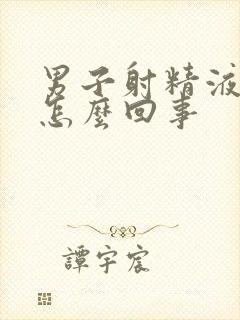 男子射精液
怎麼回事
譚宇宸